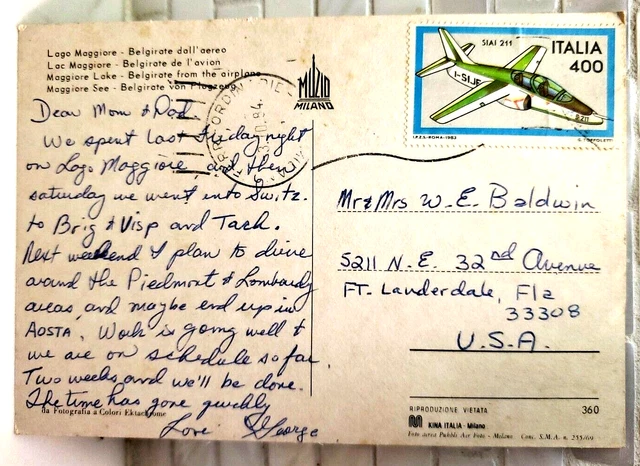 Lago Maggiore - Belgirate dall'aereo
Lac Maggiore - Belgirate de l'avion
Maggiore Lake - Belgirate from the airplane
Maggiore See - Belgirate von Flugzeug
MUZIO
MILANO
SIAI 211
ITALIA
400
I-SIJF
S.211
I.P.Z.S.-ROMA-1983
Dear Mom & Dad
We spent last Friday night
on Lago Maggiore and then
saturday we went into Switz.
to Brig & Visp and Tach.
Next weekend I plan to drive
around the Piedmont & Lombardy
areas and maybe end up in
AOSTA. Work is going well &
we are on schedule so far.
Two weeks and we'll be done.
The time has gone quickly
Love George
da Fotografia a Colori Ektachrome
Mr & Mrs W. E. Baldwin
5211 N.E. 32nd Avenue
FT. Lauderdale, Fla
33308
U.S.A.
RIPRODUZIONE VIETATA
360
KINA ITALIA - Milano
Foto aerea Pubbli Aer Foto - Milano Conc. S.M.A. n. 255/69